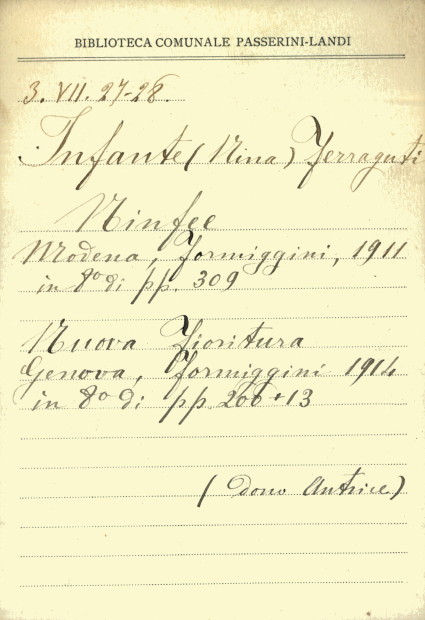 BIBLIOTECA COMUNALE PASSERINI-LANDI
3. VII. 27-28.
Infante (Nina) Ferraguti
Ninfee
Modena, Formiggini, 1911
in 8º di pp. 309
Nuova Fioritura
Genova, Formiggini 1914
in 8º di pp 200+13
(dono Autrice)